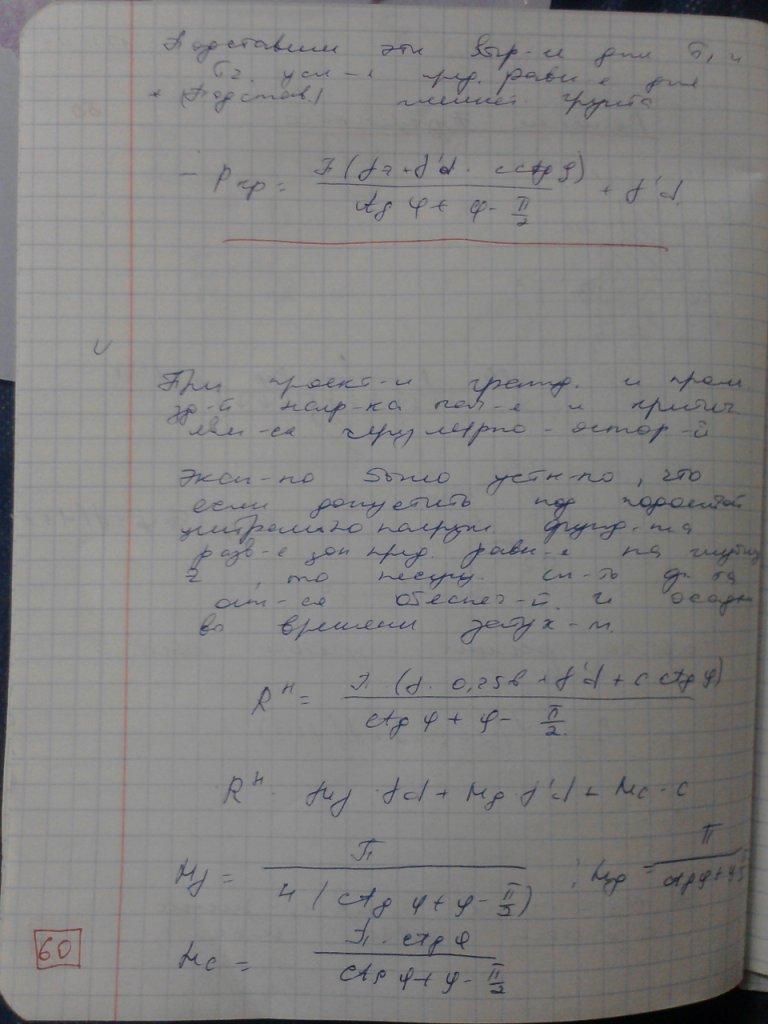 Подставим эти выр-я для б1 и
б2 усл-е пред. равн-е для
(Подстав.) линией грунта
Pкр = π(γz + γ'd · c ctg φ) / ctg φ + φ - π/2 + γ'd.
При проект-и гражд. и пром
зд-й нагр-ка
явл-ся через мерно - остор-й
Экси-но было устн-но, что
если допустить под подошвой
центрально нагруж. фунд-та
разв-е зон пред. равн-е на глубину
z, то несущ. сп-ть ф-та
ост-ся обеспеч-й. и осадки
во времени затух-т.
Rн = π (γ · 0,25в + γ'd + c ctg φ) / ctg φ + φ - π/2.
Rн Mγ γd + Mg γ'd + Mc · c
Mγ = π / 4 (ctg φ + φ - π/2) ; Mg = π / ctg φ + φ
60
Mc = π · ctg φ / ctg φ + φ - π/2